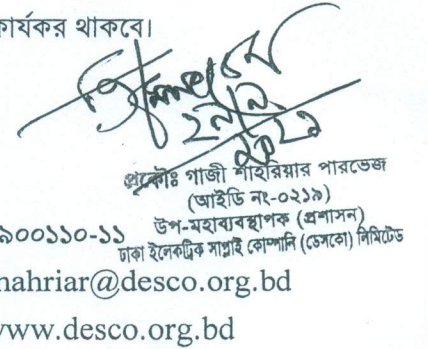 কার্যকর থাকবে।
প্রকৌঃ গাজী শাহরিয়ার পারভেজ
(আইডি নং-০২১৯)
উপ-মহাব্যবস্থাপক (প্রশাসন)
ঢাকা ইলেকট্রিক সাপ্লাই কোম্পানি (ডেসকো) লিমিটেড
৯০০১১০-১১
hahriar@desco.org.bd
www.desco.org.bd